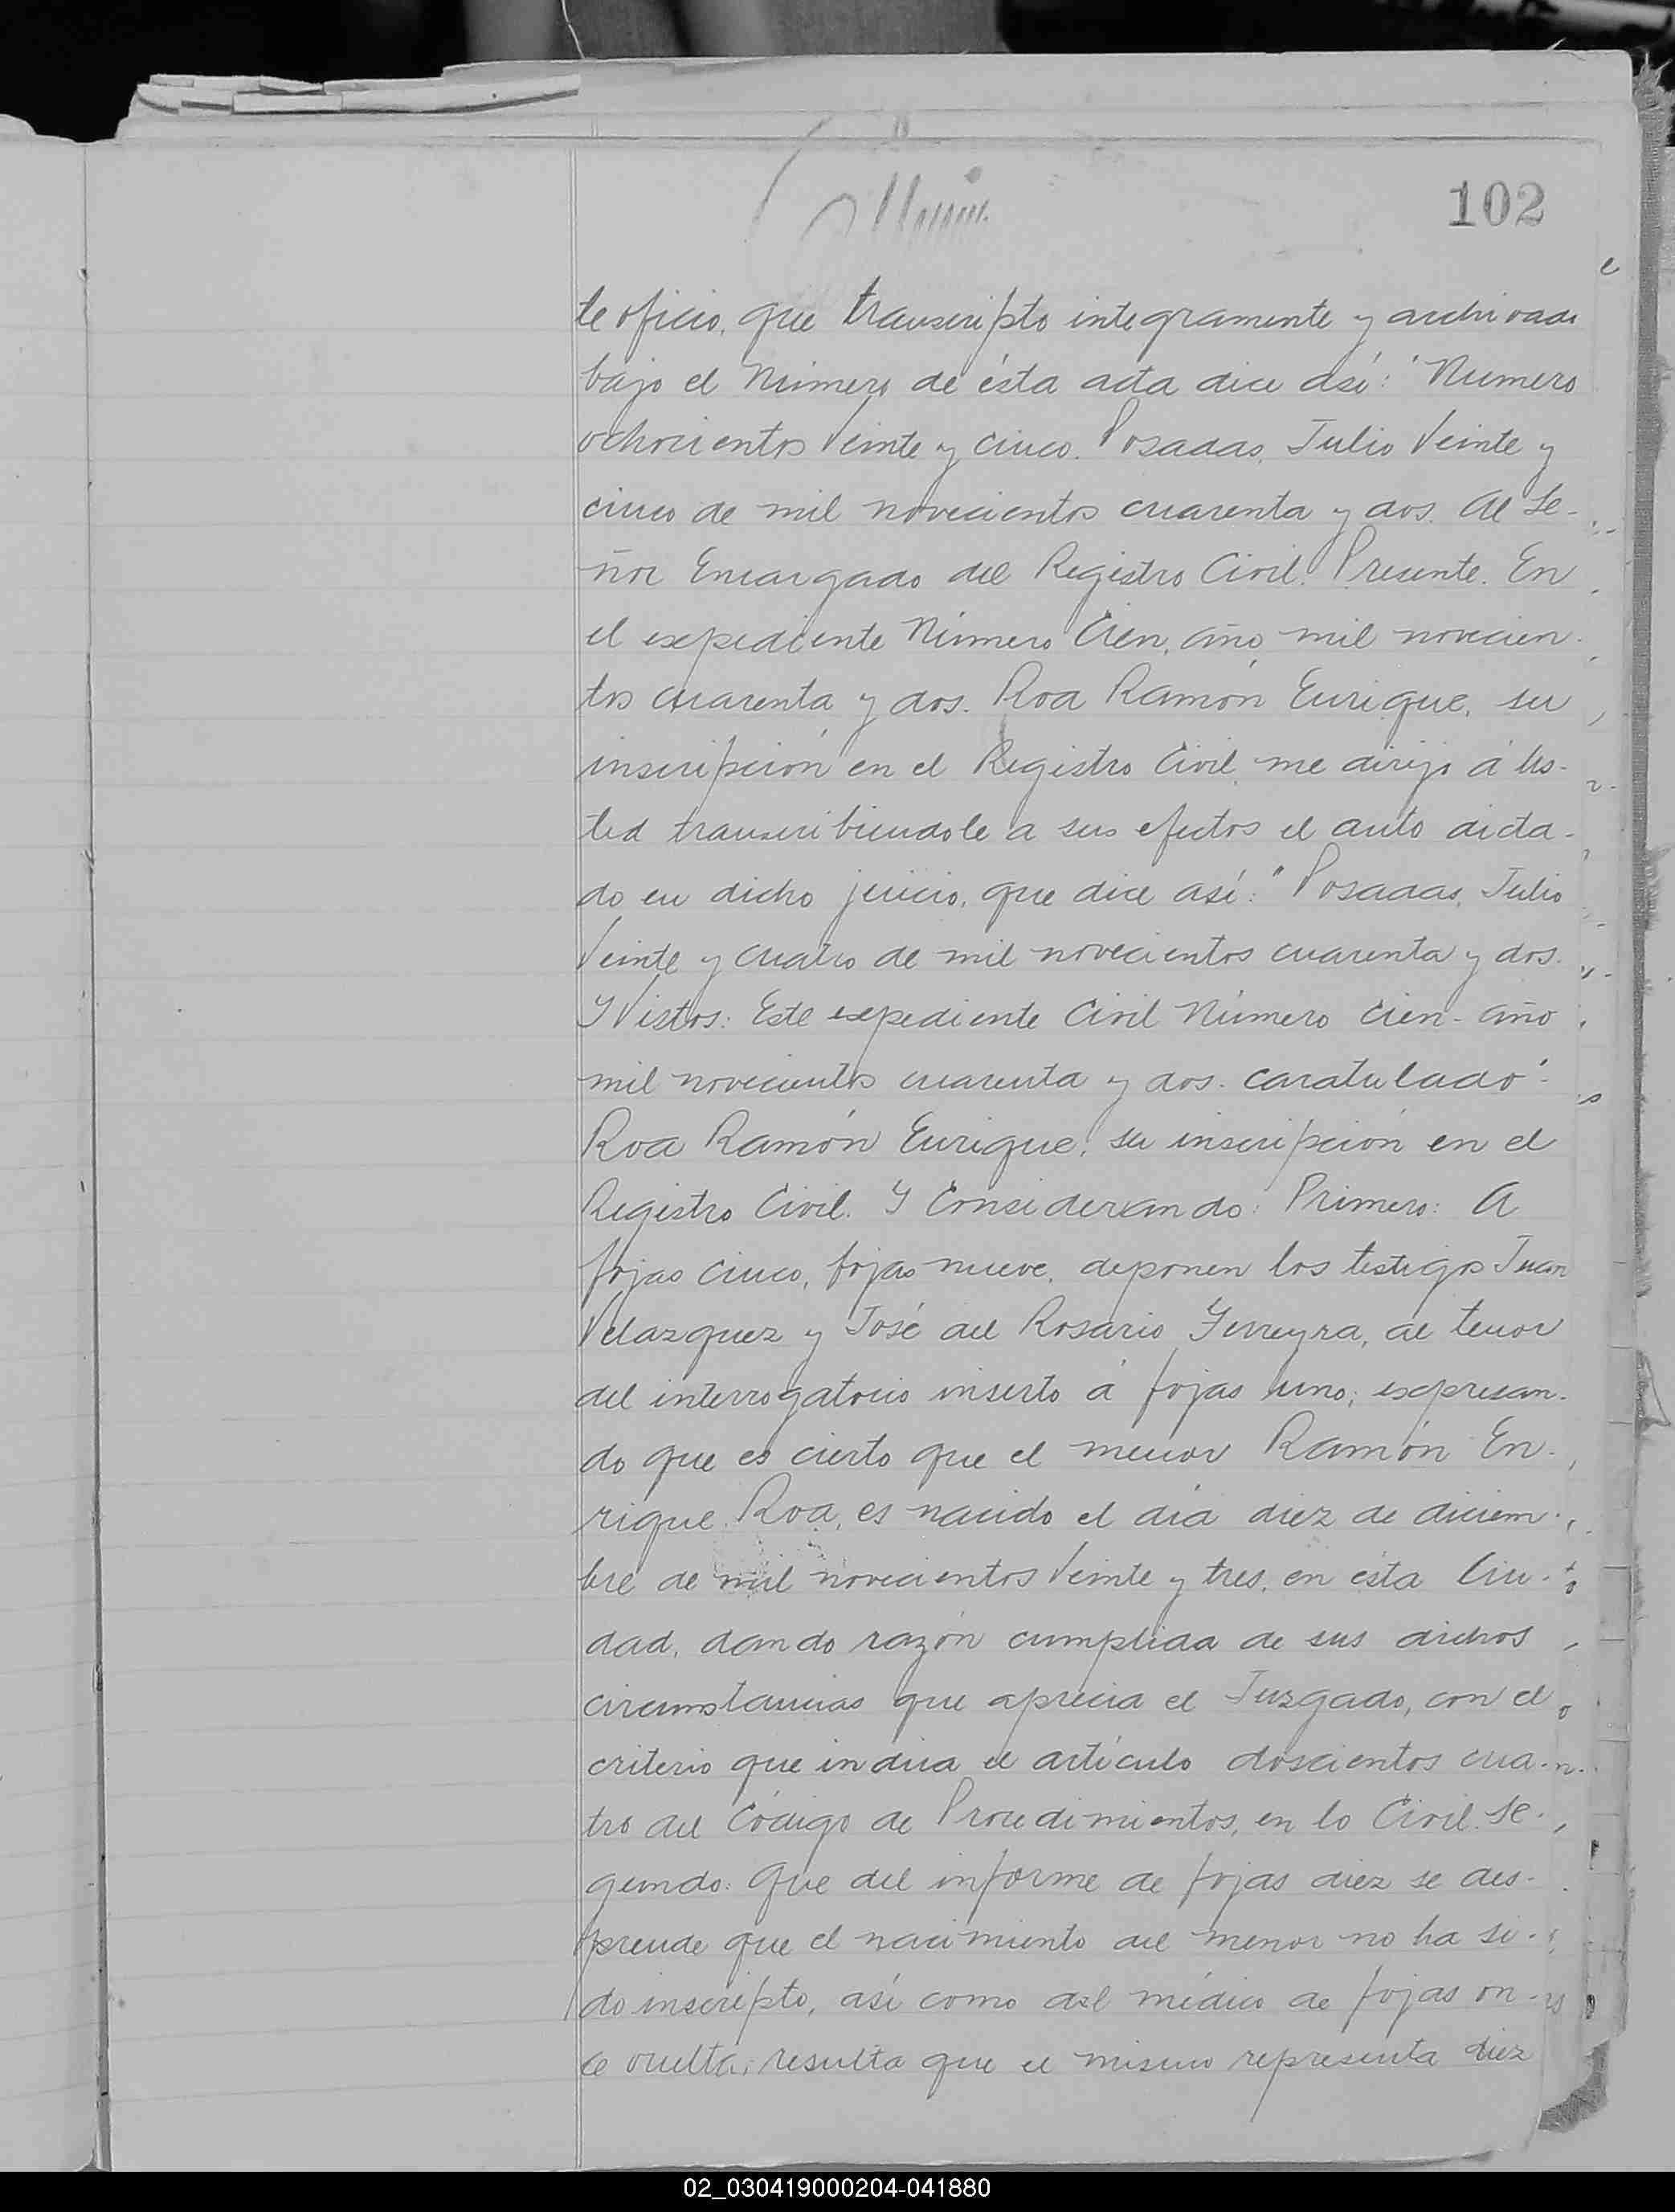 102
te oficio, que transcripto integramente y archivado
bajo el Número de ésta acta dice así: "Número
ochocientos Veinte y cinco. Posadas, Julio Veinte y
cinco de mil novecientos cuarenta y dos. Al Se-
ñor Encargado del Registro Civil. Presente. En
el expediente Número Cien, año mil novecien-
tos cuarenta y dos. Roa Ramón Enrique, su
inscripción en el Registro Civil, me dirijo á Us-
ted transcribiendole a sus efectos el auto dicta-
do en dicho juicio, que dice así: "Posadas, Julio
Veinte y cuatro de mil novecientos cuarenta y dos.
Y Vistos: Este expediente Civil Número Cien- año
mil novecientos cuarenta y dos. caratulado":
Roa Ramón Enrique, su inscripción en el
Registro Civil. Y Considerando: Primero: A
fojas cinco, fojas nueve, deponen los testigos Juan
Velazquez y José del Rosario Ferreyra, al tenor
del interrogatorio inserto á fojas uno; expresan-
do que es cierto que el menor Ramón En-
rique Roa, es nacido el día diez de diciem-
bre de mil novecientos Veinte y tres, en ésta Ciu-
dad, dando razón cumplida de sus dichos
circunstancias que aprecia el Juzgado, con el
criterio que indica el artículo doscientos cua-
tro del Código de Procedimientos, en lo Civil. Se-
gundo: Que del informe de fojas diez se des-
prende que el nacimiento del menor no ha si-
do inscripto, así como del médico de fojas on-
ce vuelta, resulta que el mismo representa diez
02_030419000204-041880